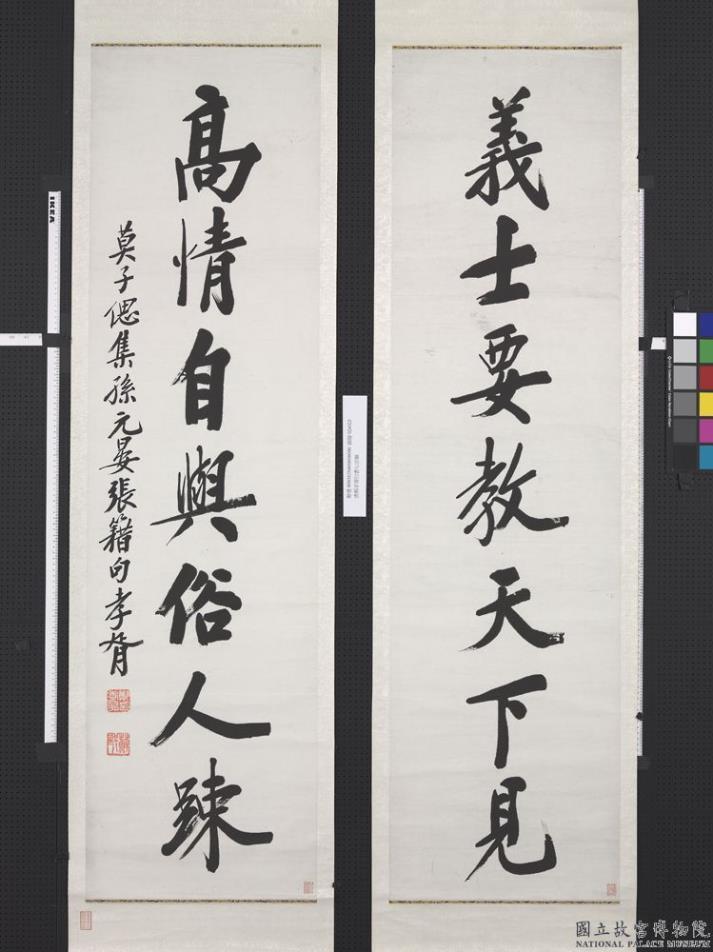 義士要教天下見
高情自與俗人踈
莫子偲集孫元晏張籍句孝胥
IKEA
國立故宮博物院
NATIONAL PALACE MUSEUM